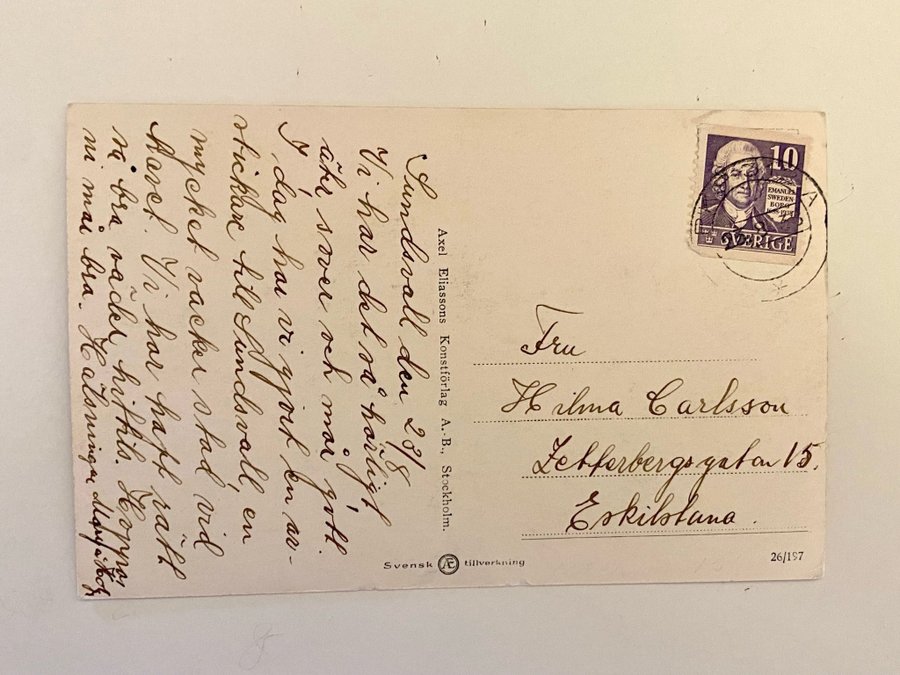 Sundsvall den 23/8
Vi har det så härligt
här över och mår gott.
I dag har vi gjort en av-
stickare till Sundsvall, en
mycket vacker stad vid
havet. Vi har haft rätt
så bra väder hittils. Hoppas
ni mår bra. Hälsningar
Axel Eliassons Konstförlag A.-B., Stockholm.
Svensk Æ tillverkning
10
EMANUEL
SWEDEN
BORG
SVERIGE
Fru
Hilma Carlsson
Zetterbergsgatan 15.
Eskilstuna.
26/197